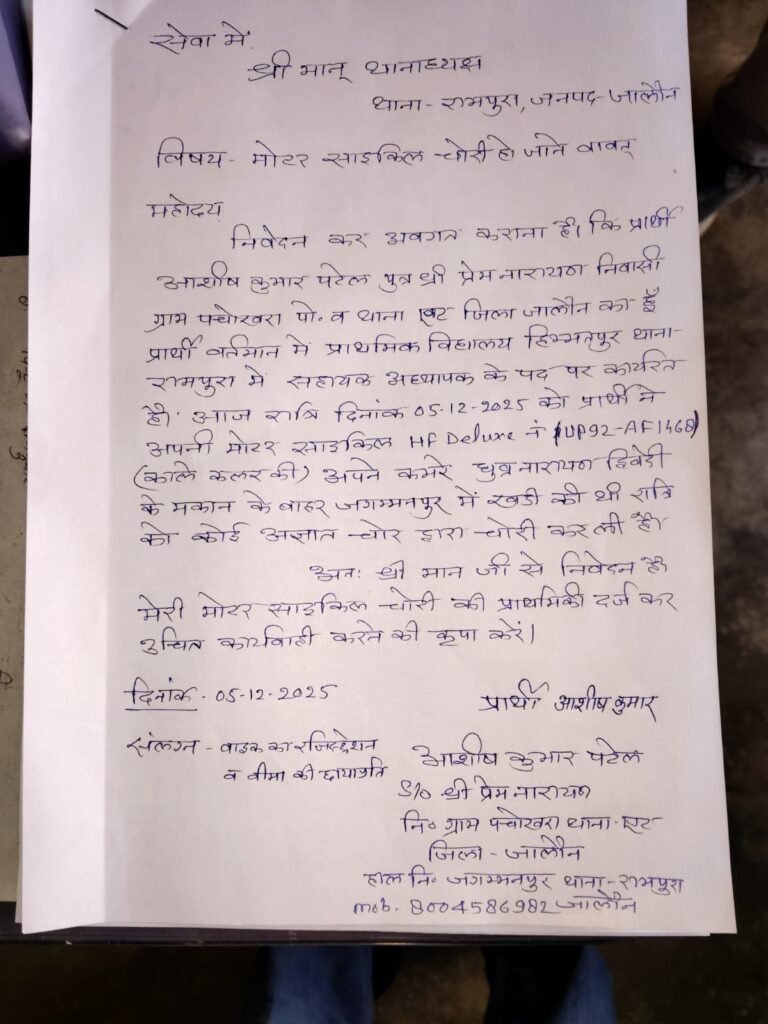 सेवा में,
श्री मान् थानाध्यक्ष
थाना - रामपुरा, जनपद - जालौन
विषय - मोटर साइकिल चोरी हो जाने वावत्
महोदय
निवेदन कर अवगत कराना है। कि प्रार्थी
आशीष कुमार पटेल पुत्र श्री प्रेम नारायण निवासी
ग्राम पचोखरा पो. व थाना एट जिला जालौन का हूँ
प्रार्थी वर्तमान में प्राथमिक विद्यालय हिम्मतपुर थाना-
रामपुरा में सहायक अध्यापक के पद पर कार्यरत
है। आज रात्रि दिनांक 05-12-2025 को प्रार्थी ने
अपनी मोटर साइकिल HF Deluxe नं (UP92-AF1468)
(काले कलर की) अपने कमरे नारायण द्विवेदी
के मकान के बाहर जगम्मनपुर में खडी की थी रात्रि
को कोई अज्ञात चोर द्वारा चोरी कर ली है।
अतः श्री मान जी से निवेदन है।
मेरी मोटर साइकिल चोरी की प्राथमिकी दर्ज कर
उचित कार्यवाही करने की कृपा करें।
दिनांक - 05-12-2025
प्रार्थी आशीष कुमार
संलग्न - वाहक का रजिस्ट्रेशन
व बीमा की छायाप्रति
आशीष कुमार पटेल
S/o श्री प्रेम नारायण
नि० ग्राम पचोखरा थाना - एट
जिला - जालौन
हाल नि० जगम्मनपुर थाना - रामपुरा
mob. 8004586982 जालौन